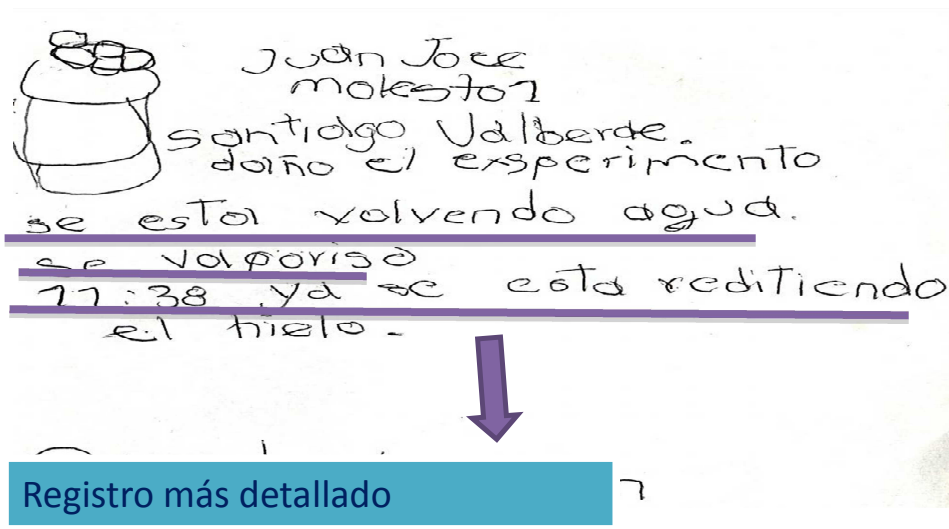 Juan Jose
molesto1
Santiago Valberde.
daiño el exsperimento
se esta volvendo agua.
se vaporiso
11:38 ya se esta reditiendo
el hielo.
Registro más detallado